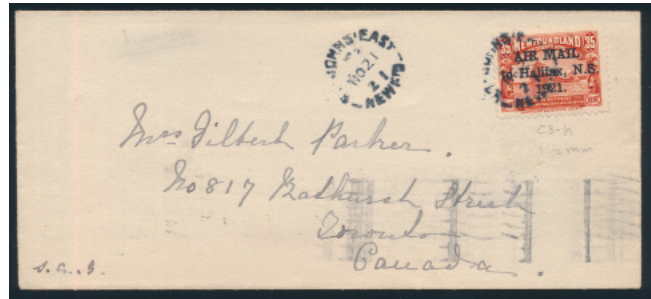 ST. JOHNS EAST
NO 21
21
NEWF'D
NEWFOUNDLAND
35 35
AIR MAIL
to Halifax, N.S.
1921.
C3-h
1½mm
Mrs Gilbert Parker.
No 817 Bathurst Street
Toronto
Canada.